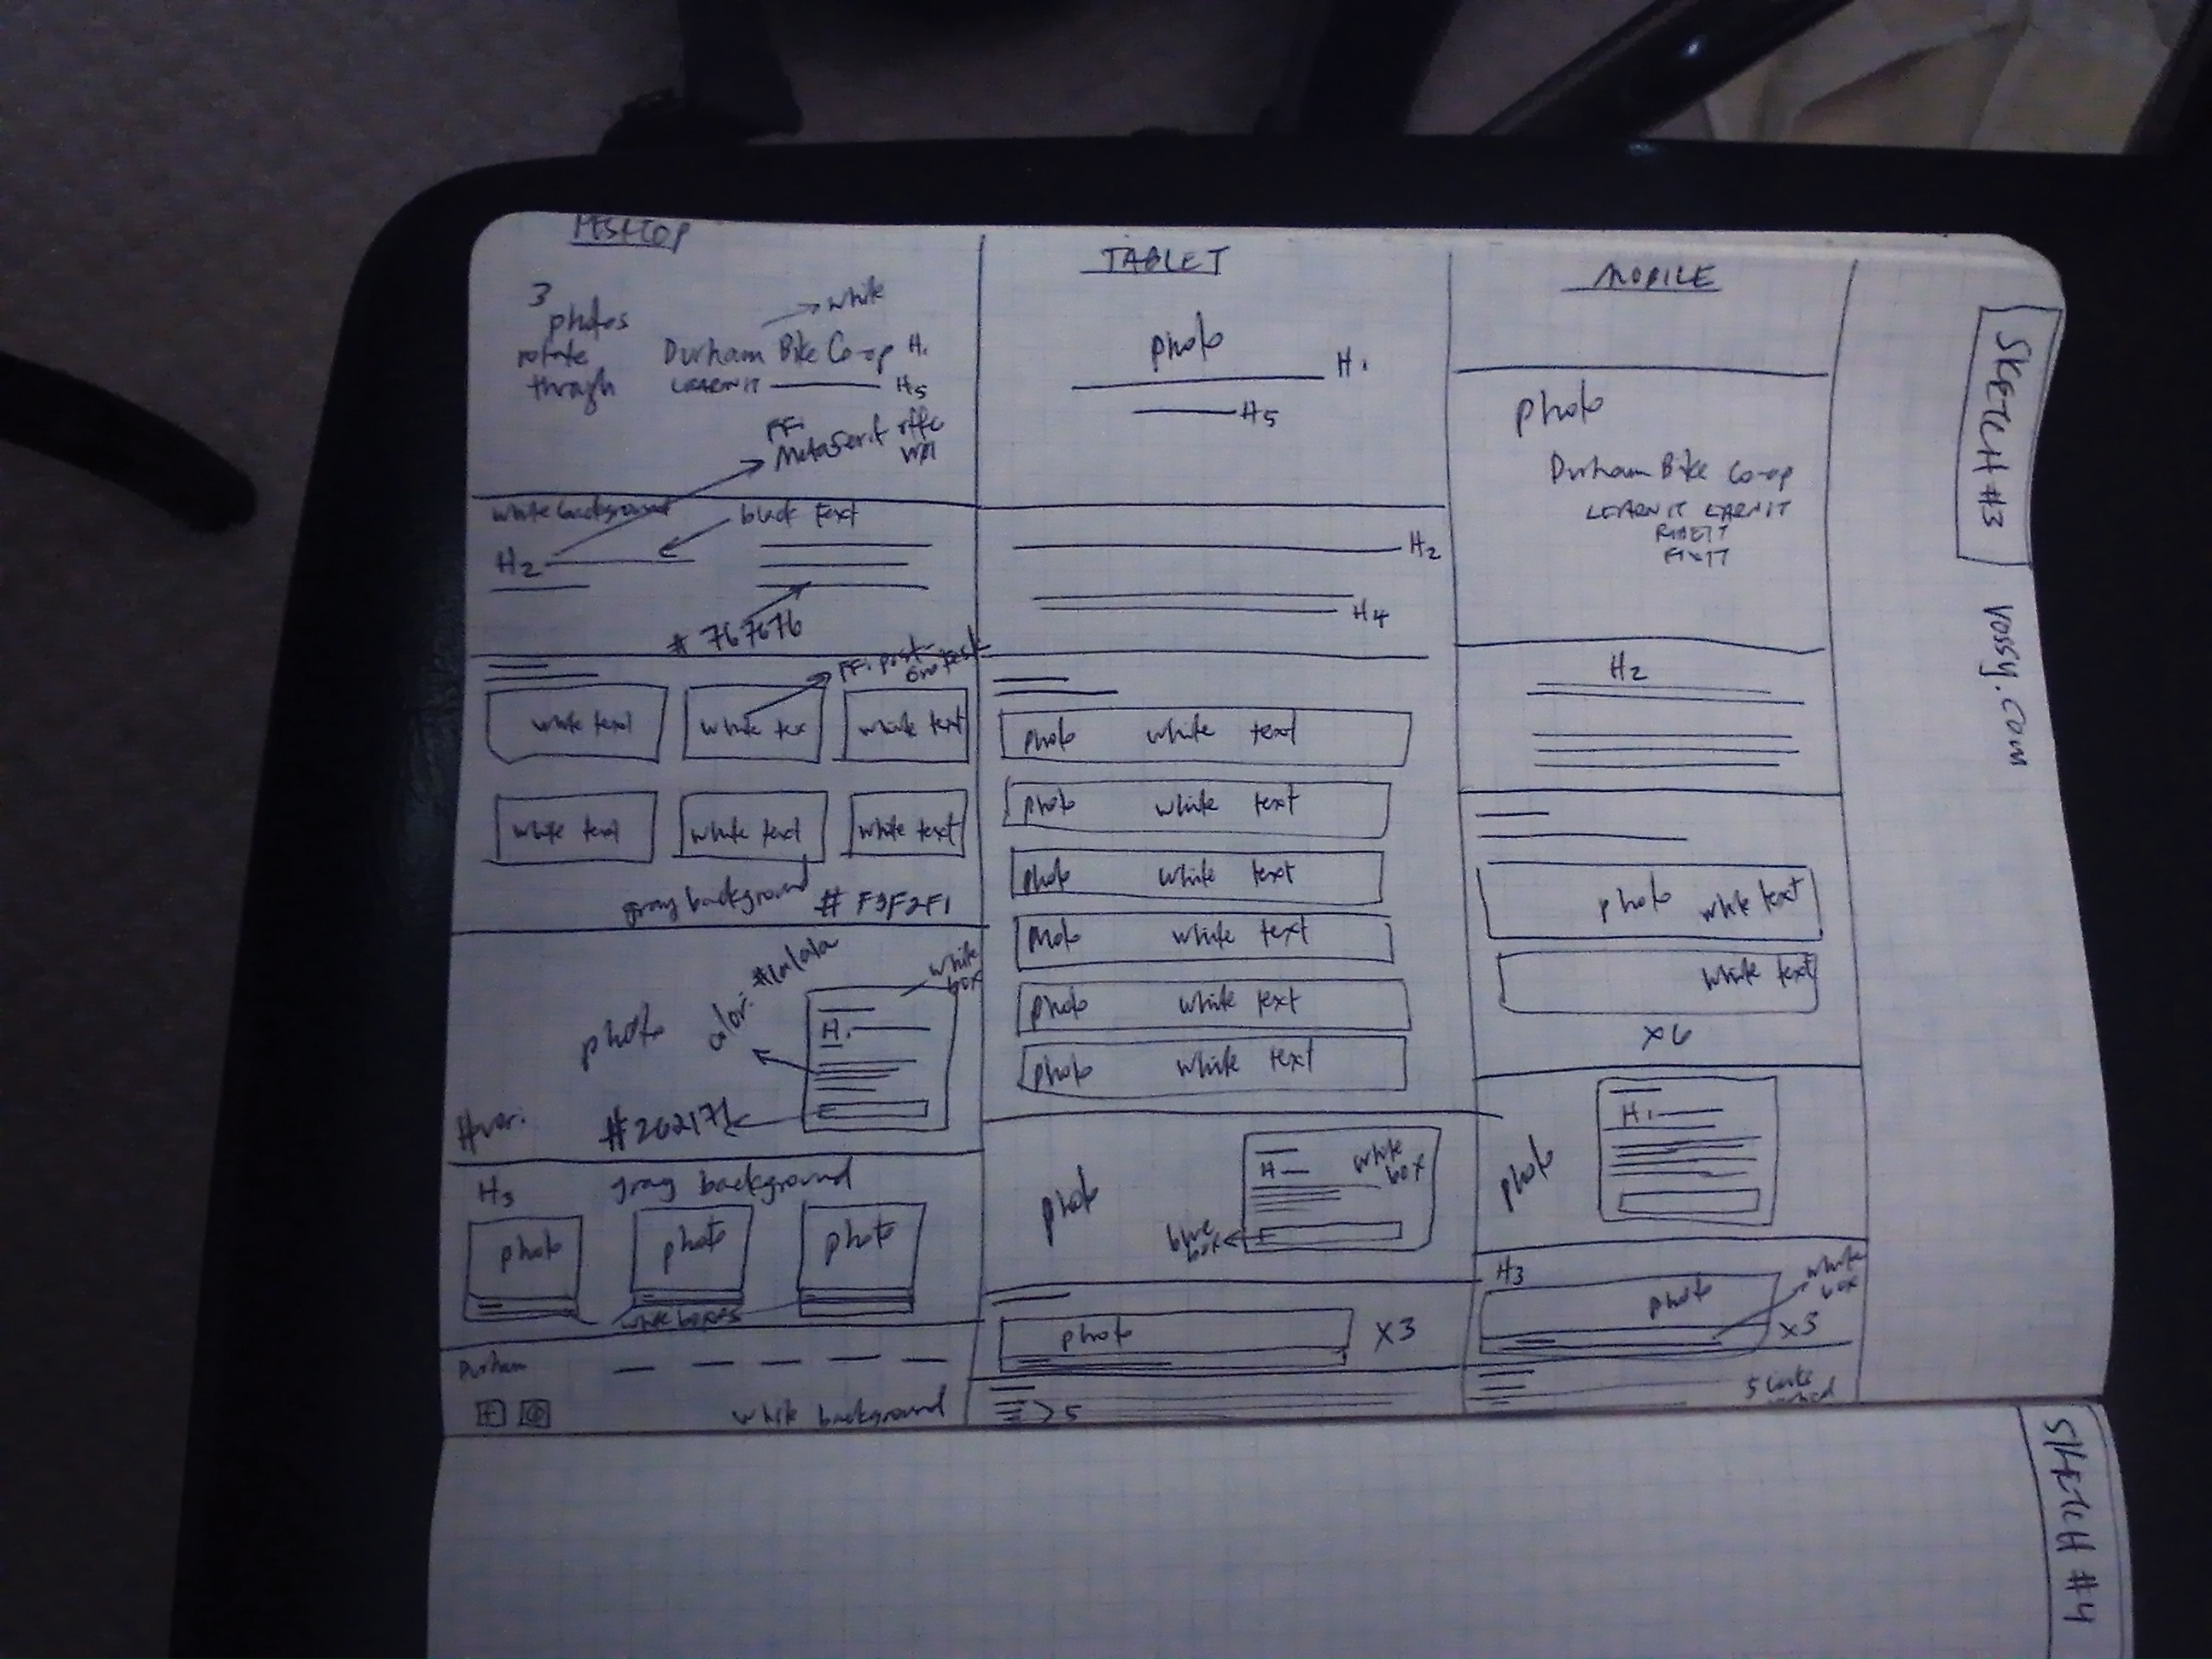 DESKTOP
3
photos
rotate
through
white
Durham Bike Co-op H1
LEARN IT H5
FF:
MetaSerif
white background
black text
H2
#767676
FF:
white text
white tex
white text
white text
white text
white text
gray background #F3F2F1
photo
color: #1a1a1a
white
box
H1
#262171
H3
gray background
photo
photo
photo
white boxes
Durham
white background
TABLET
photo
H1
H5
H2
H4
photo white text
photo white text
photo white text
photo white text
photo white text
photo white text
photo
H1
white
box
blue
box
photo
x3
5
MOBILE
photo
Durham Bike Co-op
LEARN IT EARN IT
RIDE IT
FIX IT
H2
photo white text
white text
x6
photo
H1
H3
photo
white
box
x3
5 links
SKETCH #3
vossy.com
SKETCH #4